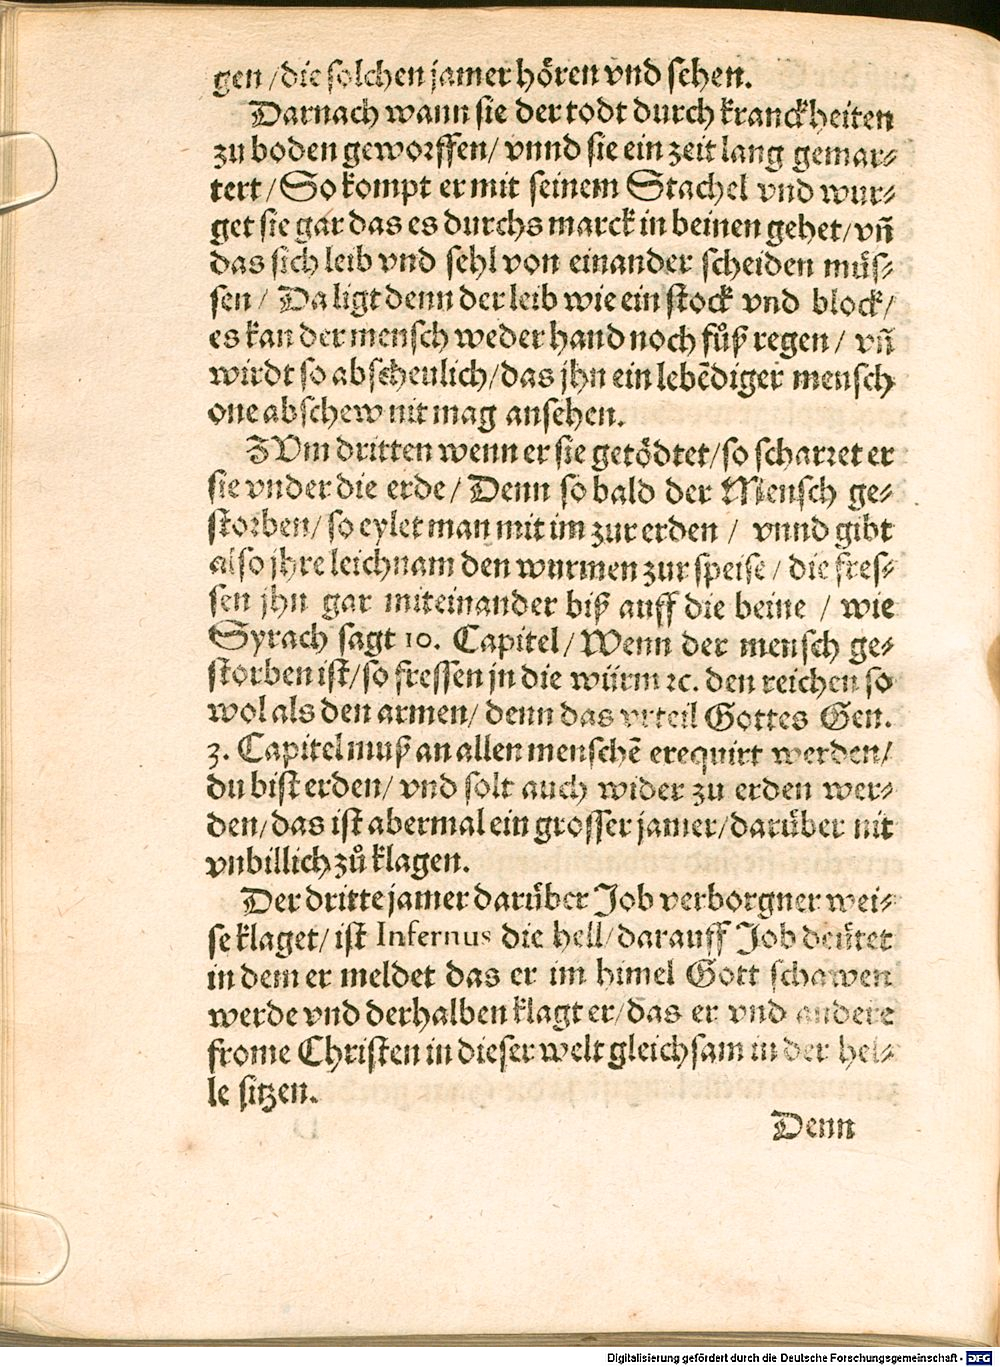 gen / die solchen jamer hören vnd sehen.
Darnach wann sie der todt durch kranckheiten
zu boden geworffen / vnnd sie ein zeit lang gemar⸗
tert / So kompt er mit seinem Stachel vnd wur⸗
get sie gar das es durchs marck in beinen gehet / vñ
das sich leib vnd sehl von einander scheiden müs⸗
sen / Da ligt denn der leib wie ein stock vnd block /
es kan der mensch weder hand noch fůß regen / vñ
wirdt so abscheulich / das jhn ein lebēdiger mensch
one abschew nit mag ansehen.
ZVm dritten wenn er sie getödtet / so scharret er
sie vnder die erde / Denn so bald der Mensch ge⸗
storben / so eylet man mit im zur erden / vnnd gibt
also jhre leichnam den wurmen zur speise / die fres⸗
sen jhn gar miteinander biß auff die beine / wie
Syrach sagt 10. Capitel / Wenn der mensch ge⸗
storben ist / so fressen jn die würm ꝛc. den reichen so
wol als den armen / denn das vrteil Gottes Gen.
3. Capitel muß an allen menschē erequirt werden /
du bist erden / vnd solt auch wider zu erden wer⸗
den / das ist abermal ein grosser jamer / darüber nit
vnbillich zů klagen.
Der dritte jamer darüber Job verborgner wei⸗
se klaget / ist Infernus die hell / darauff Job deütet
in dem er meldet das er im himel Gott schawen
werde vnd derhalben klagt er / das er vnd andere
frome Christen in dieser welt gleichsam in der hel⸗
le sitzen.
Denn
Digitalisierung gefördert durch die Deutsche Forschungsgemeinschaft - DFG